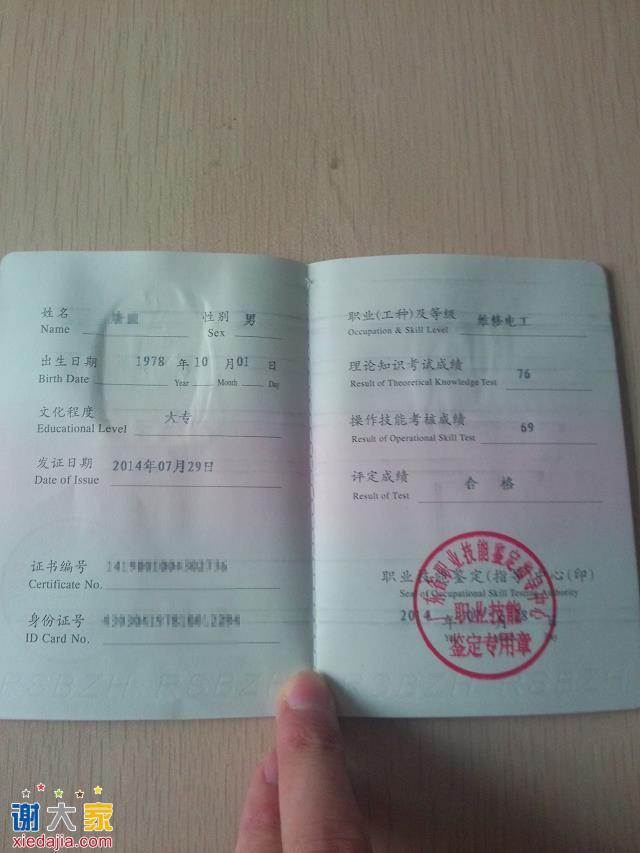 姓名 性别 男
Name Sex
出生日期 1978 年 10 月 01 日
Birth Date Year Month Day
文化程度 大专
Educational Level
发证日期 2014年07月29日
Date of Issue
证书编号
Certificate No.
身份证号
ID Card No.
职业(工种)及等级 维修电工
Occupation & Skill Level
理论知识考试成绩 76
Result of Theoretical Knowledge Test
操作技能考核成绩 69
Result of Operational Skill Test
评定成绩 合 格
Result of Test
职业技能鉴定(指导)中心(印)
Seal of Occupational Skill Testing Authority
2014 年 月 28 日
Year Month Day
职业技能鉴定指导中心
职业技能
鉴定专用章
RSBZH RSBZH RSBZH
谢大家
xiedajia.com